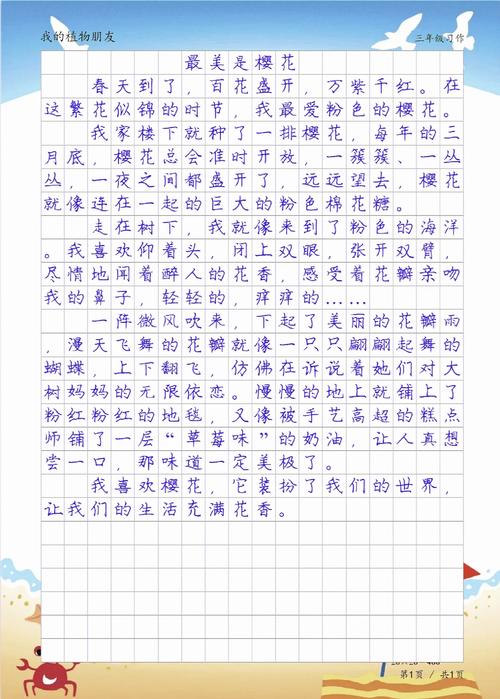 我的植物朋友
三年级习作
最美是樱花
春天到了，百花盛开，万紫千红。在
这繁花似锦的时节，我最爱粉色的樱花。
我家楼下就种了一排樱花，每年的三
月底，樱花总会准时开放，一簇簇、一丛
丛，一夜之间都盛开了，远远望去，樱花
就像连在一起的巨大的粉色棉花糖。
走在树下，我就像来到了粉色的海洋
。我喜欢仰着头，闭上双眼，张开双臂，
尽情地闻着醉人的花香，感受着花瓣亲吻
我的鼻子，轻轻的，痒痒的……
一阵微风吹来，下起了美丽的花瓣雨
，漫天飞舞的花瓣就像一只只翩翩起舞的
蝴蝶，上下翻飞，仿佛在诉说着她们对大
树妈妈的无限依恋。慢慢的地上就铺上了
粉红粉红的地毯，又像被手艺高超的糕点
师铺了一层“草莓味”的奶油，让人真想
尝一口，那味道一定美极了。
我喜欢樱花，它装扮了我们的世界，
让我们的生活充满花香。
第1页 / 共1页